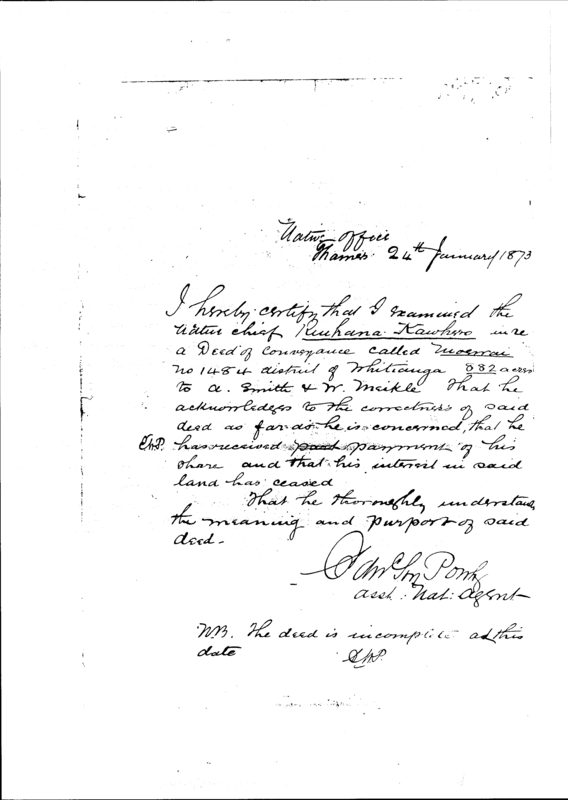 Native Office
Thames 24th January 1873
I hereby certify that I examined the
Native chief Reuhana Kawhero in re
a Deed of Conveyance called
No 1484 district of Whitianga 882 acres
to A. Smith & W. Meikle That he
acknowledges to the correctness of said
deed as far as he is concerned, that he
has received part payment of his
share and that his interest in said
land has ceased
That he thoroughly understands
the meaning and purport of said
deed.
Asst: Nat: Agent
N.B. The deed is incomplete at this
date